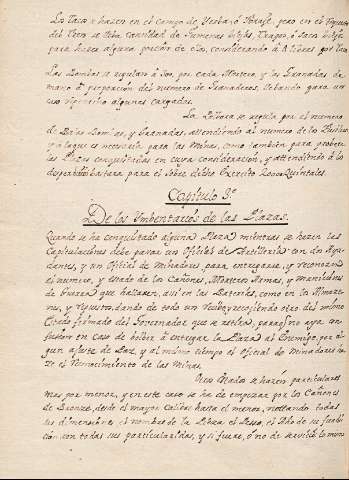 Los Tacos se hazen en el campo de Yerba, ó forage, pero en el Parque
del Tren se lleva cantidad de filastica, Trapos, ó sacos biejos
para hazer alguna porcion de ellos, considerando á 8 libras por
Las Bombas se regulan á 500, por cada Mortero, y las Granadas de
mano á proporcion del numero de Granaderos, llebando para un
caso repentino algunas cargadas.
La Polbora se regula por el numero
de Balas, Bombas, y Granadas, attendiendo al numero de los
y á la que es necesaria para las Minas, como tambien para probeer
las Plazas conquistadas en cuya consideracion, y attendiendo á los
desperdicios bastara para el sobre dicho Exercito Quintales.
Capitulo 3º
De los Imbentarios de las Plazas.
Quando se ha conquistado alguna Plaza mientras se hazen las
Capitulaciones debe pasar un Oficial de Artilleria con dos Ayu-
dantes, y un Oficial de Minadores para entregarse, y reconozer
el numero, y estado de los Cañones, Morteros, Armas, y municiones
de Guerra que hallaren, asi en las Baterias, como en los Almaze-
nes, y Parques, dando de todo un recibo, y recojiendo otro del mismo
firmado del Governador que se retira, para que no aya con-
fusion en caso de bolber á entregar la Plaza al Enemigo, por al-
gun ajuste de Paz, y al mismo tiempo el Oficial de Minadores ha-
ra el reconocimiento de las Minas.
Otros se hazen particulares
mas por menor, y en este caso se ha de empezar por los Cañones
de Bronze, desde el mayor calibre hasta el menor, nottando todas
sus dimensiones el nombre de la Pieza, el Peso, el Año de su fundi-
cion con todas sus particularidades, y si fuere, ó no de servicio lo mismo